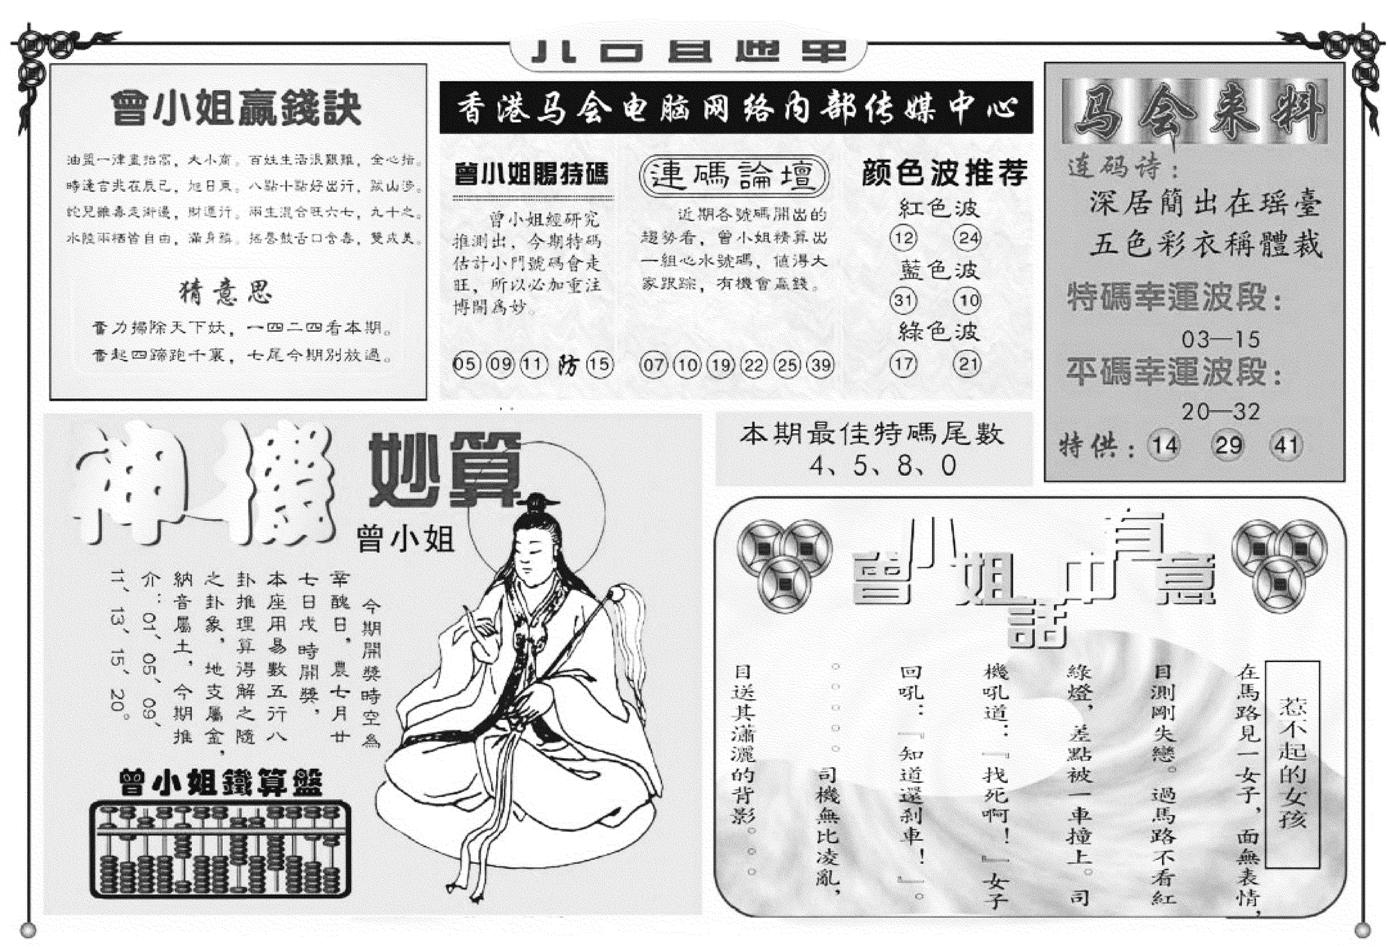 曾小姐贏錢訣
油鹽一律畫抬高，大小商。百姓生活浪艱難，全心拾。
時逢吉兆在辰巳，旭日東。八點十點好出行，跋山涉。
蛇兒雖毒走街邊，財運行。兩生混合旺六七，九十之。
水陸兩栖皆自由，滿身福。搖唇鼓舌口含毒，雙成美。
猜意思
奮力掃除天下妖，一四二四看本期。
奮起四蹄跑千裏，七尾今期別放過。
香港马会电脑网络内部传媒中心
曾小姐賜特碼
曾小姐經研究
推測出，今期特码
估計小門號碼會走
旺，所以必加重注
博開爲妙。
05 09 11 防 15
連碼論壇
近期各號碼開出的
趨勢看，曾小姐精算出
一組心水號碼，值得大
家跟踪，有機會贏錢。
07 10 19 22 25 39
颜色波推荐
紅色波
12 24
藍色波
31 10
綠色波
17 21
马会来料
连码诗：
深居簡出在瑶臺
五色彩衣稱體裁
特碼幸運波段：
03—15
平碼幸運波段：
20—32
特供：14 29 41
本期最佳特碼尾數
4、5、8、0
神機妙算
曾小姐
今期開獎時空為
辛醜日，農七月廿
七日戌時開獎，
本座用易數五行八
卦推理算得解之隨
之卦象，地支屬金，
納音屬土，今期推
介：01、05、09、
11、13、15、20。
曾小姐鐵算盤
曾小姐話中有意
惹不起的女孩
在馬路見一女子，面無表情，
目測剛失戀。過馬路不看紅
綠燈，差點被一車撞上。司
機吼道：『找死啊！』女子
回吼：『知道還刹車！』。
。。。。司機無比凌亂，
目送其瀟灑的背影。。。